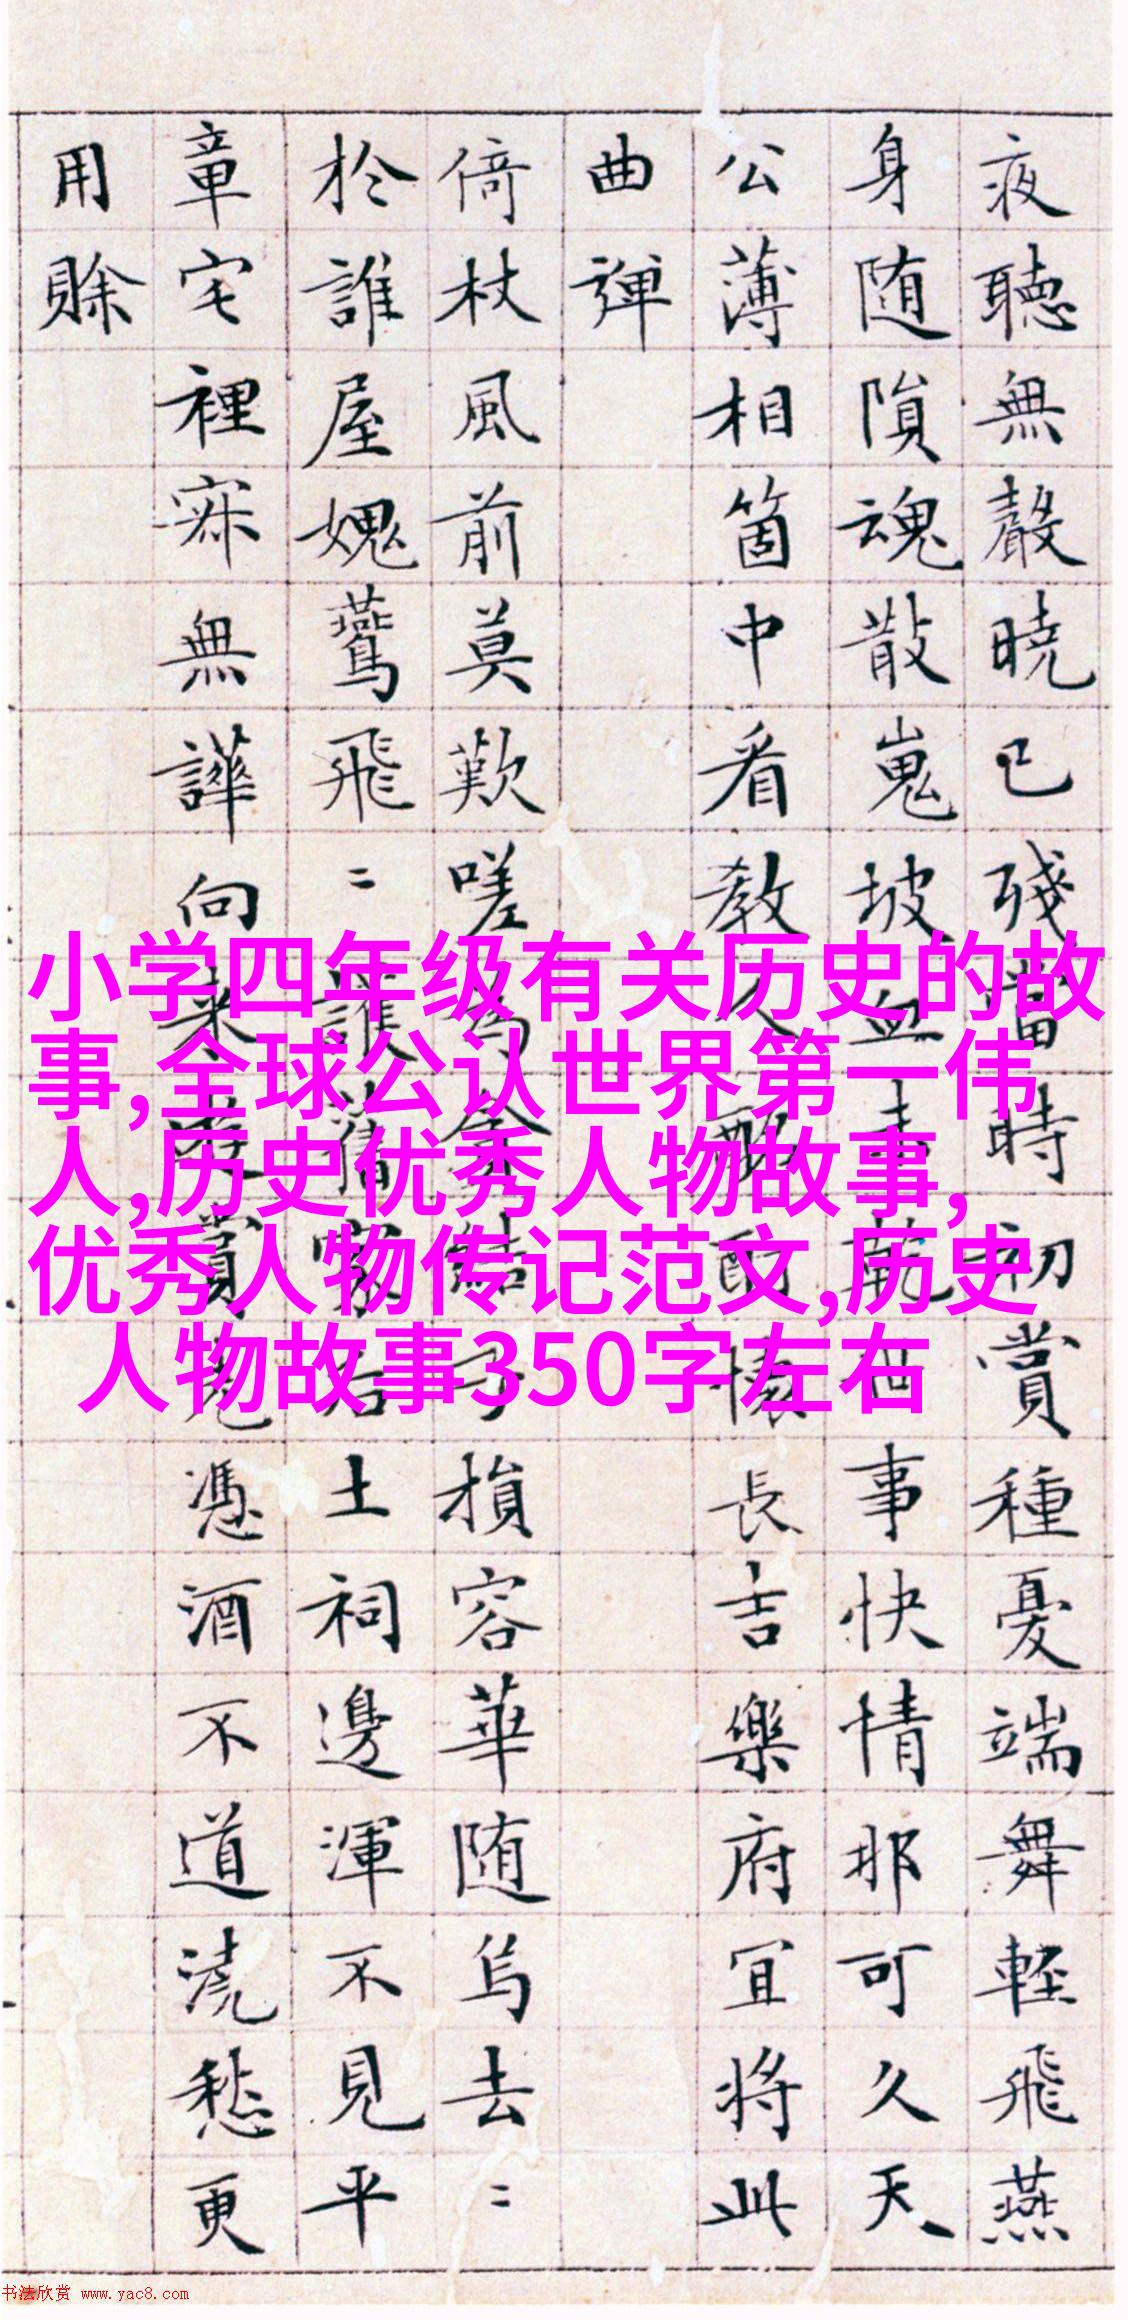 夜聽無聲曉已殘當時初賞種憂端舞輕飛燕
身随隕魂散嵬坡血乾世事快情那可久天
公薄相箇中看教酩酊懷長吉樂府宜将此
曲弾
倚杖風前莫歎嗟為余結子損容華随烏去〻
於誰屋媿鷰飛〻誰家后土祠邊渾不見平
章宅裡寂無譁向来遊賞憑酒不道澆愁更
用賒
小学四年级有关历史的故
事,全球公认世界第一伟
人,历史优秀人物故事,
优秀人物传记范文,历史
人物故事350字左右
书法欣赏 www.yac8.com